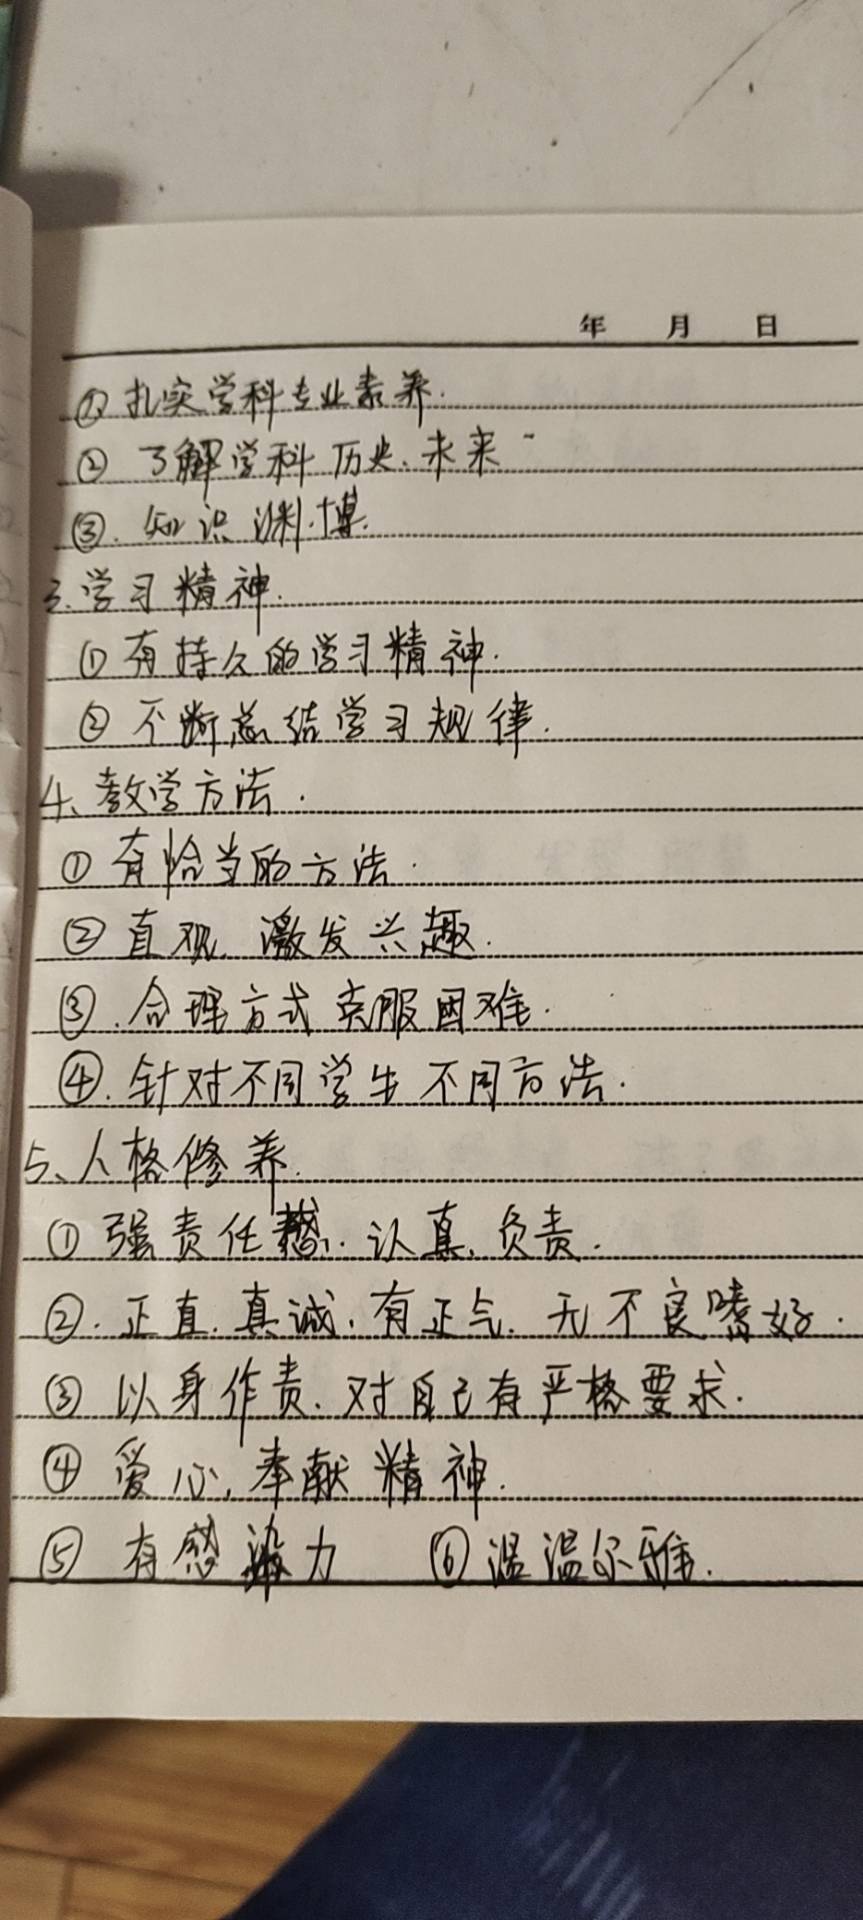 年 月 日
① 扎实学科专业素养.
② 了解学科历史、未来
③. 知识渊博.
3.学习精神.
① 有持久的学习精神.
② 不断总结学习规律.
4、教学方法.
① 有恰当的方法.
② 直观, 激发兴趣.
③.合理方式克服困难.
④.针对不同学生不同方法.
5、人格修养.
① 强责任感.认真,负责.
②.正直.真诚,有正气.无不良嗜好.
③ 以身作责.对自己有严格要求.
④ 爱心,奉献精神.
⑤ 有感染力 ⑥温温尔雅.